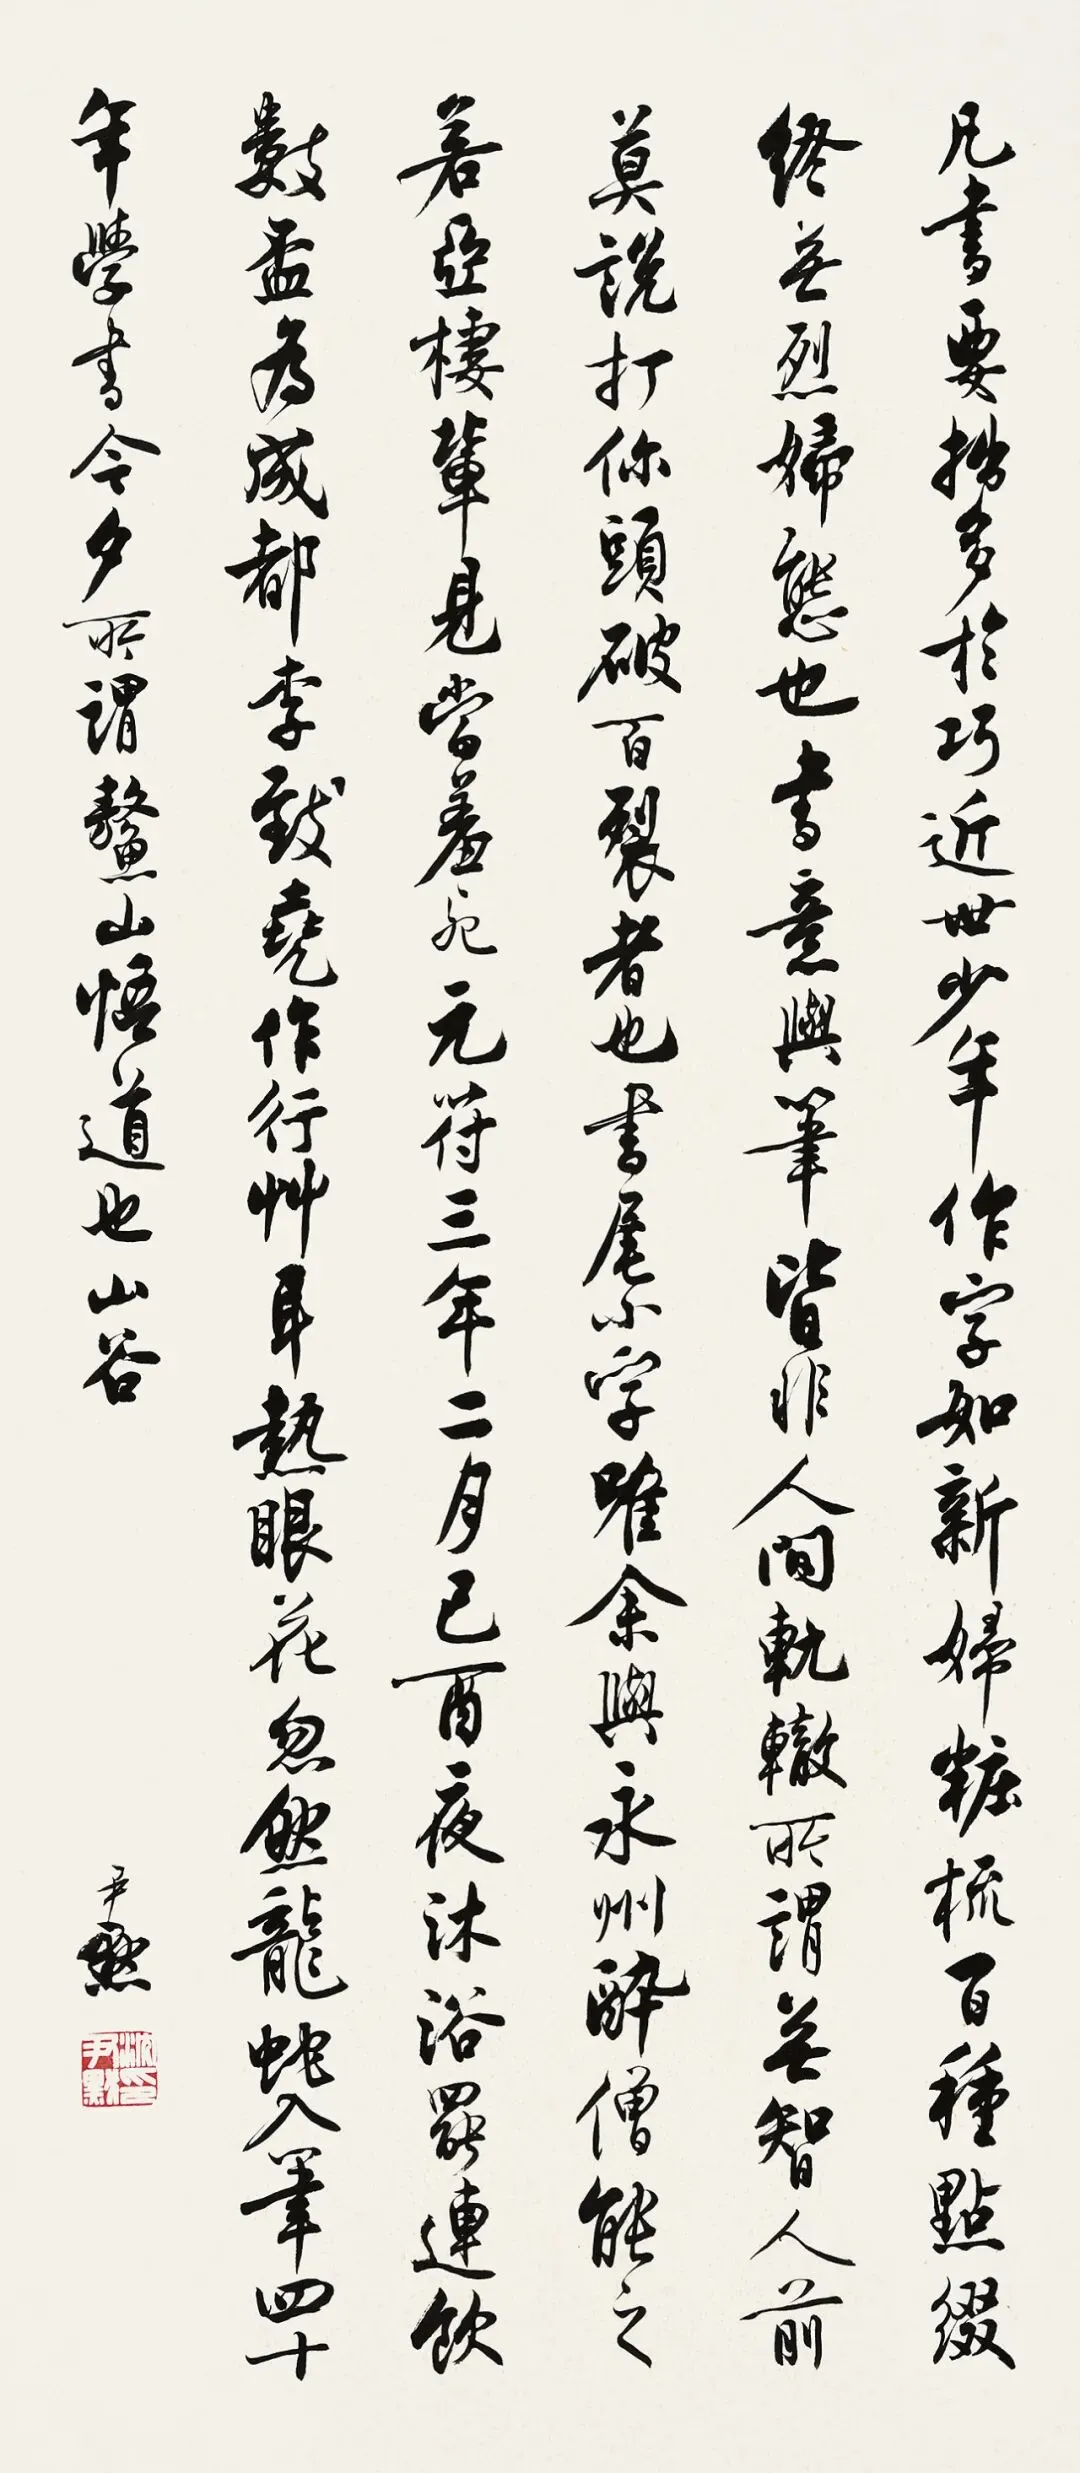 凡書要拙多於巧近世少年作字如新婦粧梳百種點綴
終無烈婦態也書意與筆皆非人間軌轍所謂無智人前
莫說打你頭破百裂者也書尾小字唯余與永州醉僧能之
若亞棲輩見當羞死元符三年二月己酉夜沐浴罷連飲
數盃為成都李致堯作行艸耳熱眼花忽然龍蛇入筆四十
年學書今夕所謂鰲山悟道也山谷
尹默
沈尹默印